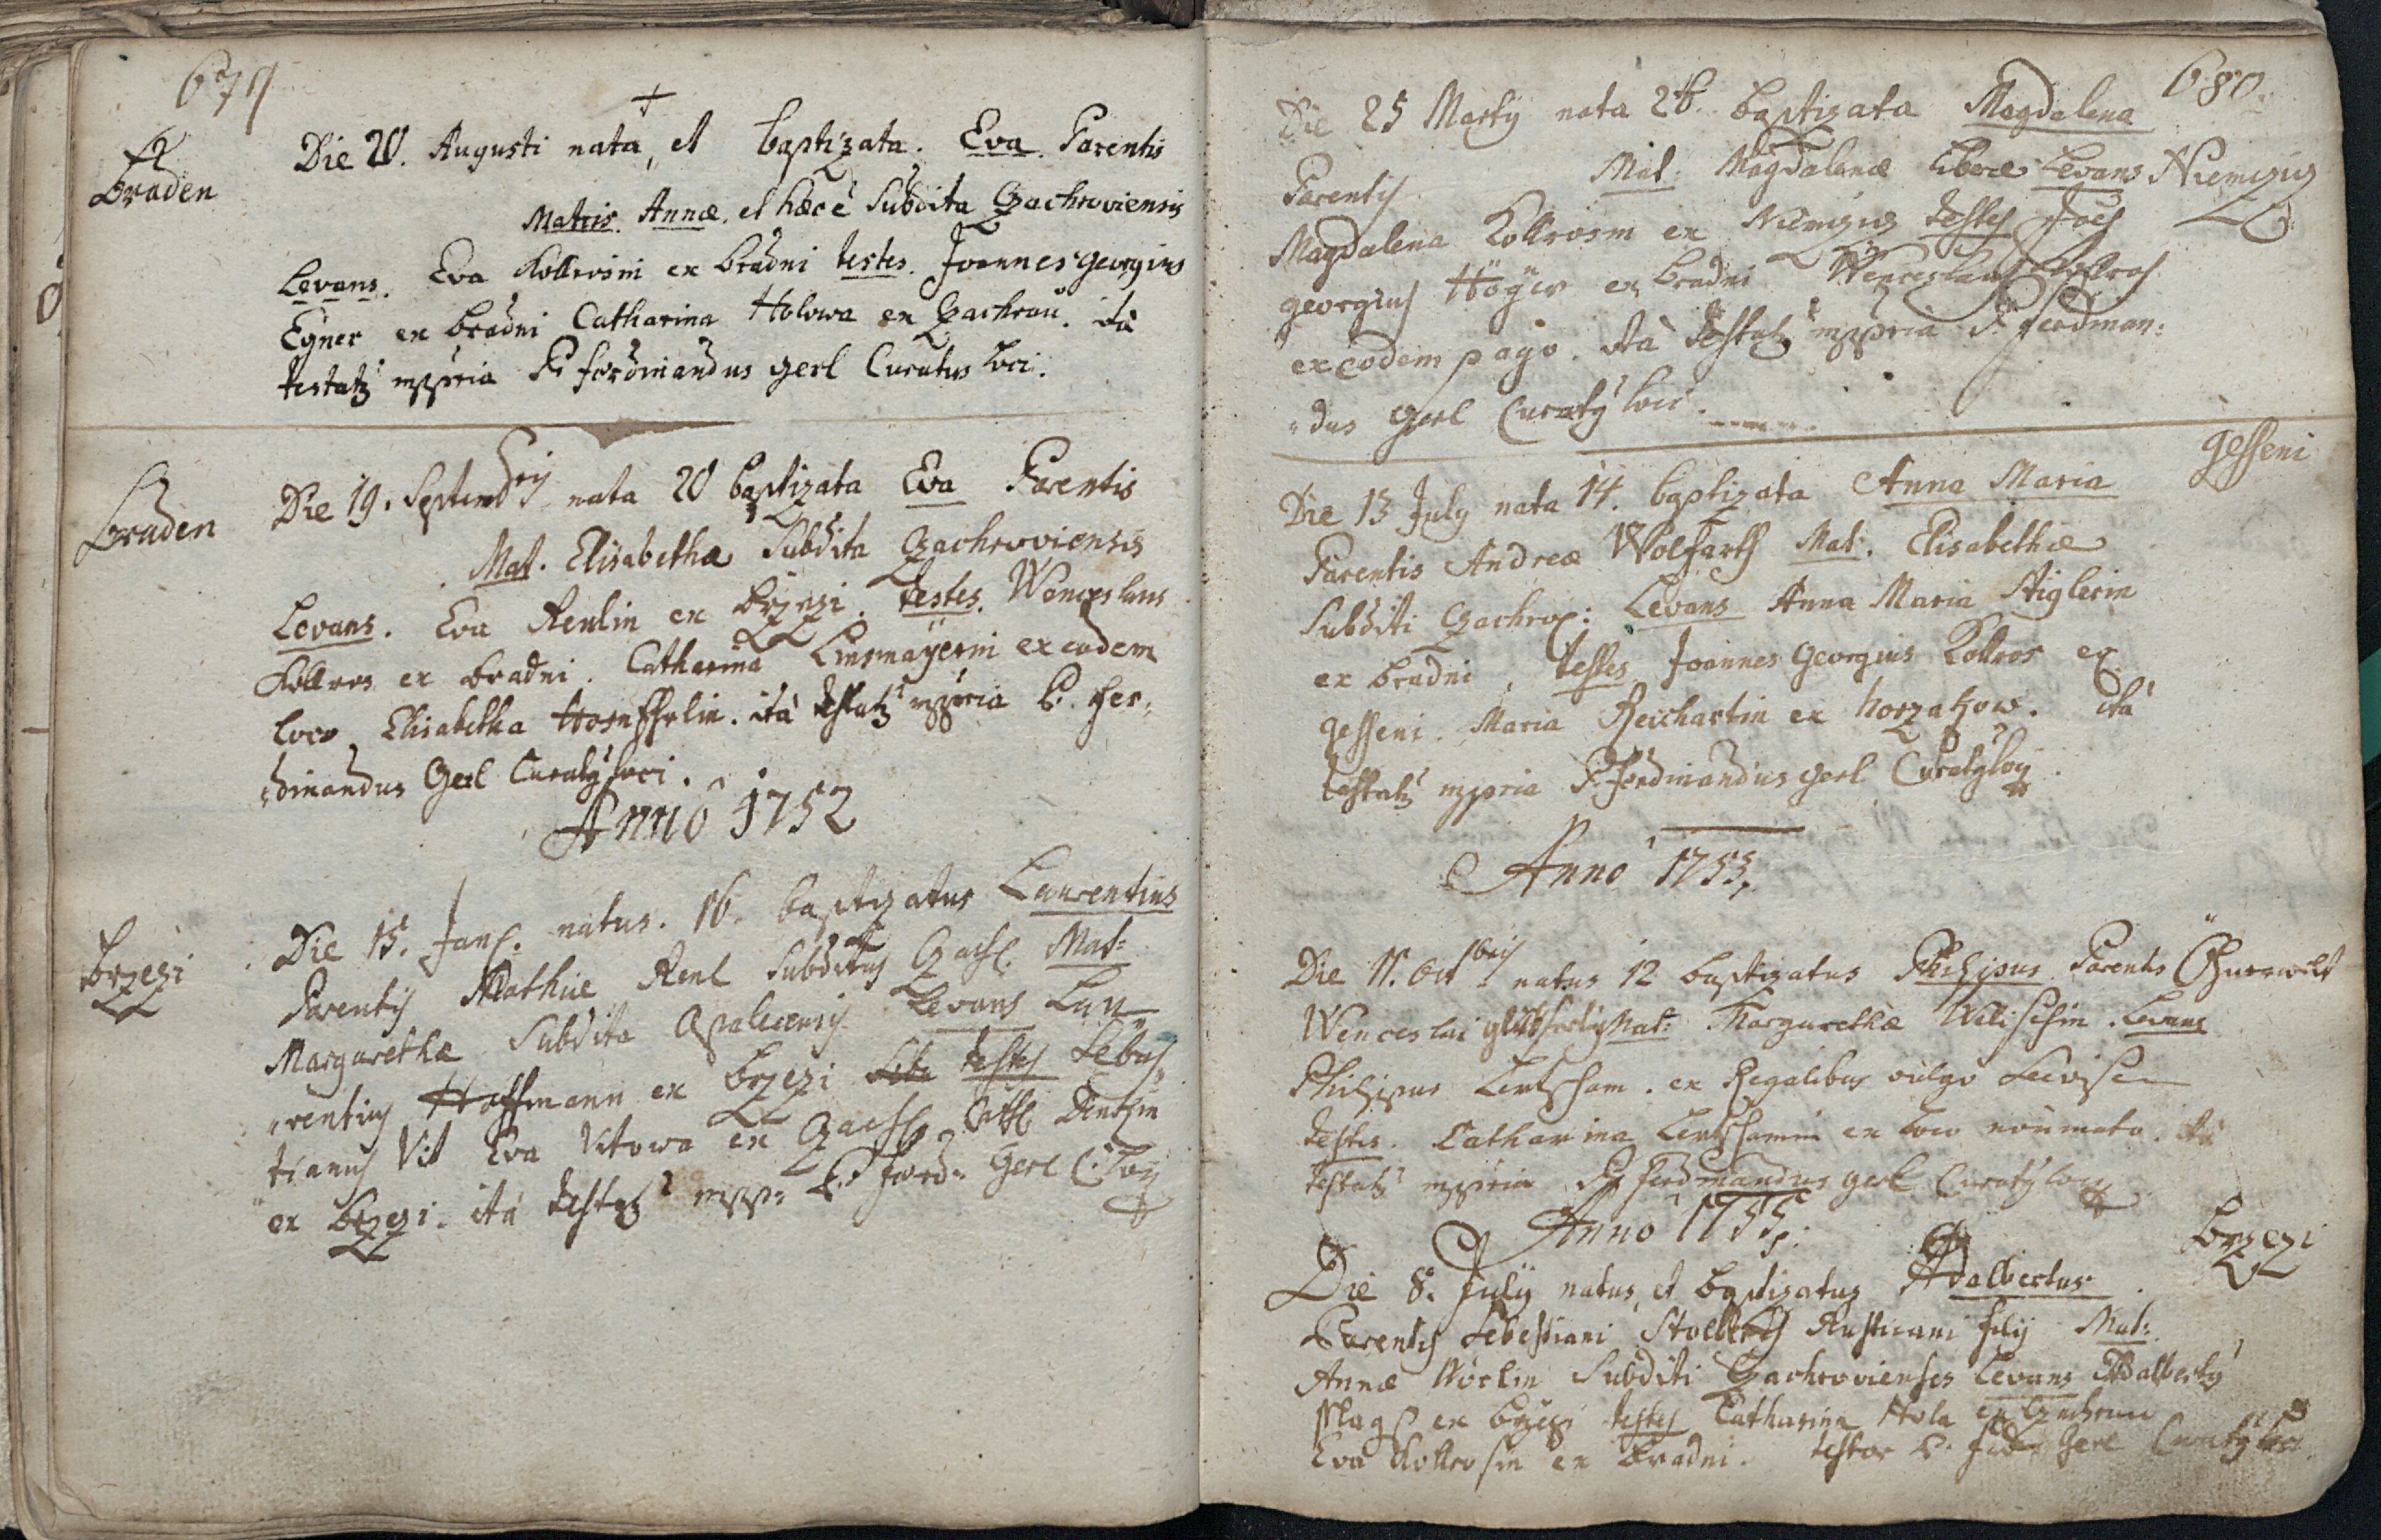 679
Braden
Die 20. Augusti nata, et baptizata. Eva. Parentis
Matris. Annæ. et hæc è Subdita Czachroviensis
Levans. Eva Kollrosin ex bradni testes. Joannes georgius
Egner ex bradni Catharina Holowa ex Czachrau. ità
testatz mppria P. ferdinandus gerl Curatus loci.
Braden
Die 19. Septembris nata 20 baptizata Eva Parentis
Mat. Elisabethæ Subdita Czachroviensis
Levans. Eva Renlin ex brzezi. testes. Wenceslaus
Kollros ex bradni. Catharina Linsmayerin ex eodem
loco Elisabetha. ità testatz mppria P. fer,
dinandus Gerl Curatq loci.
Anno 1752
brzezi
Die 15. Jan. natus. 16. baptizatus Laurentius
Parentis Mathiæ Renl Subditus Czach. Mat:
Margarethæ Subdita Levans Lau,
rentius Hoffmann ex brzezi testes Sebas,
tianus Vit Eva Vitowa ex Czach.
ex brzezi. ità testatz mpp: P. Ferd: Gerl C: loci
680
Die 25 Martij nata 26. baptizata Magdalena
Parentis Mat: Magdalenæ liberæ Levans
Magdalena Kollrosin ex testes Joes
georgius Höger ex bradni Wenceslaus Kollros
ex eodem pago. ità testatz mppria P. ferdinan:
dus Gerl Curatq loci.
gesseni
Die 13 July nata 14. baptizata Anna Maria
Parentis Andreæ Wolfarth Mat. Elisabethæ
Subditi Czachrov: Levans Anna Maria Stiglerin
ex bradni, testes Joannes Georgius Kollros ex
gesseni. Maria Reichartin ex horzakow. ità
testatz mppria P. ferdinandus gerl Curatq loci
Anno 1753.
Die 11. Octobris natus 12 baptizatus Philipus Parentis
Wenceslai Mat: Margarethæ Levans
Philipus ex Regalibus vulgo
testes. Catharina ex loco ità
testatz mppria P. ferdinandus gerl Curatq loci
Anno 1755.
brzezi
Die 8. July natus, et baptizatus Adalbertus
Parentis Sebestiani Rusticani filij Mat:
Annæ Subditi Czachrovienses Levans Adalbertq
ex brzezi testes Catharina ex Czachrau
Eva Kollrosin ex bradni. testor P. Gerl Curatq loci